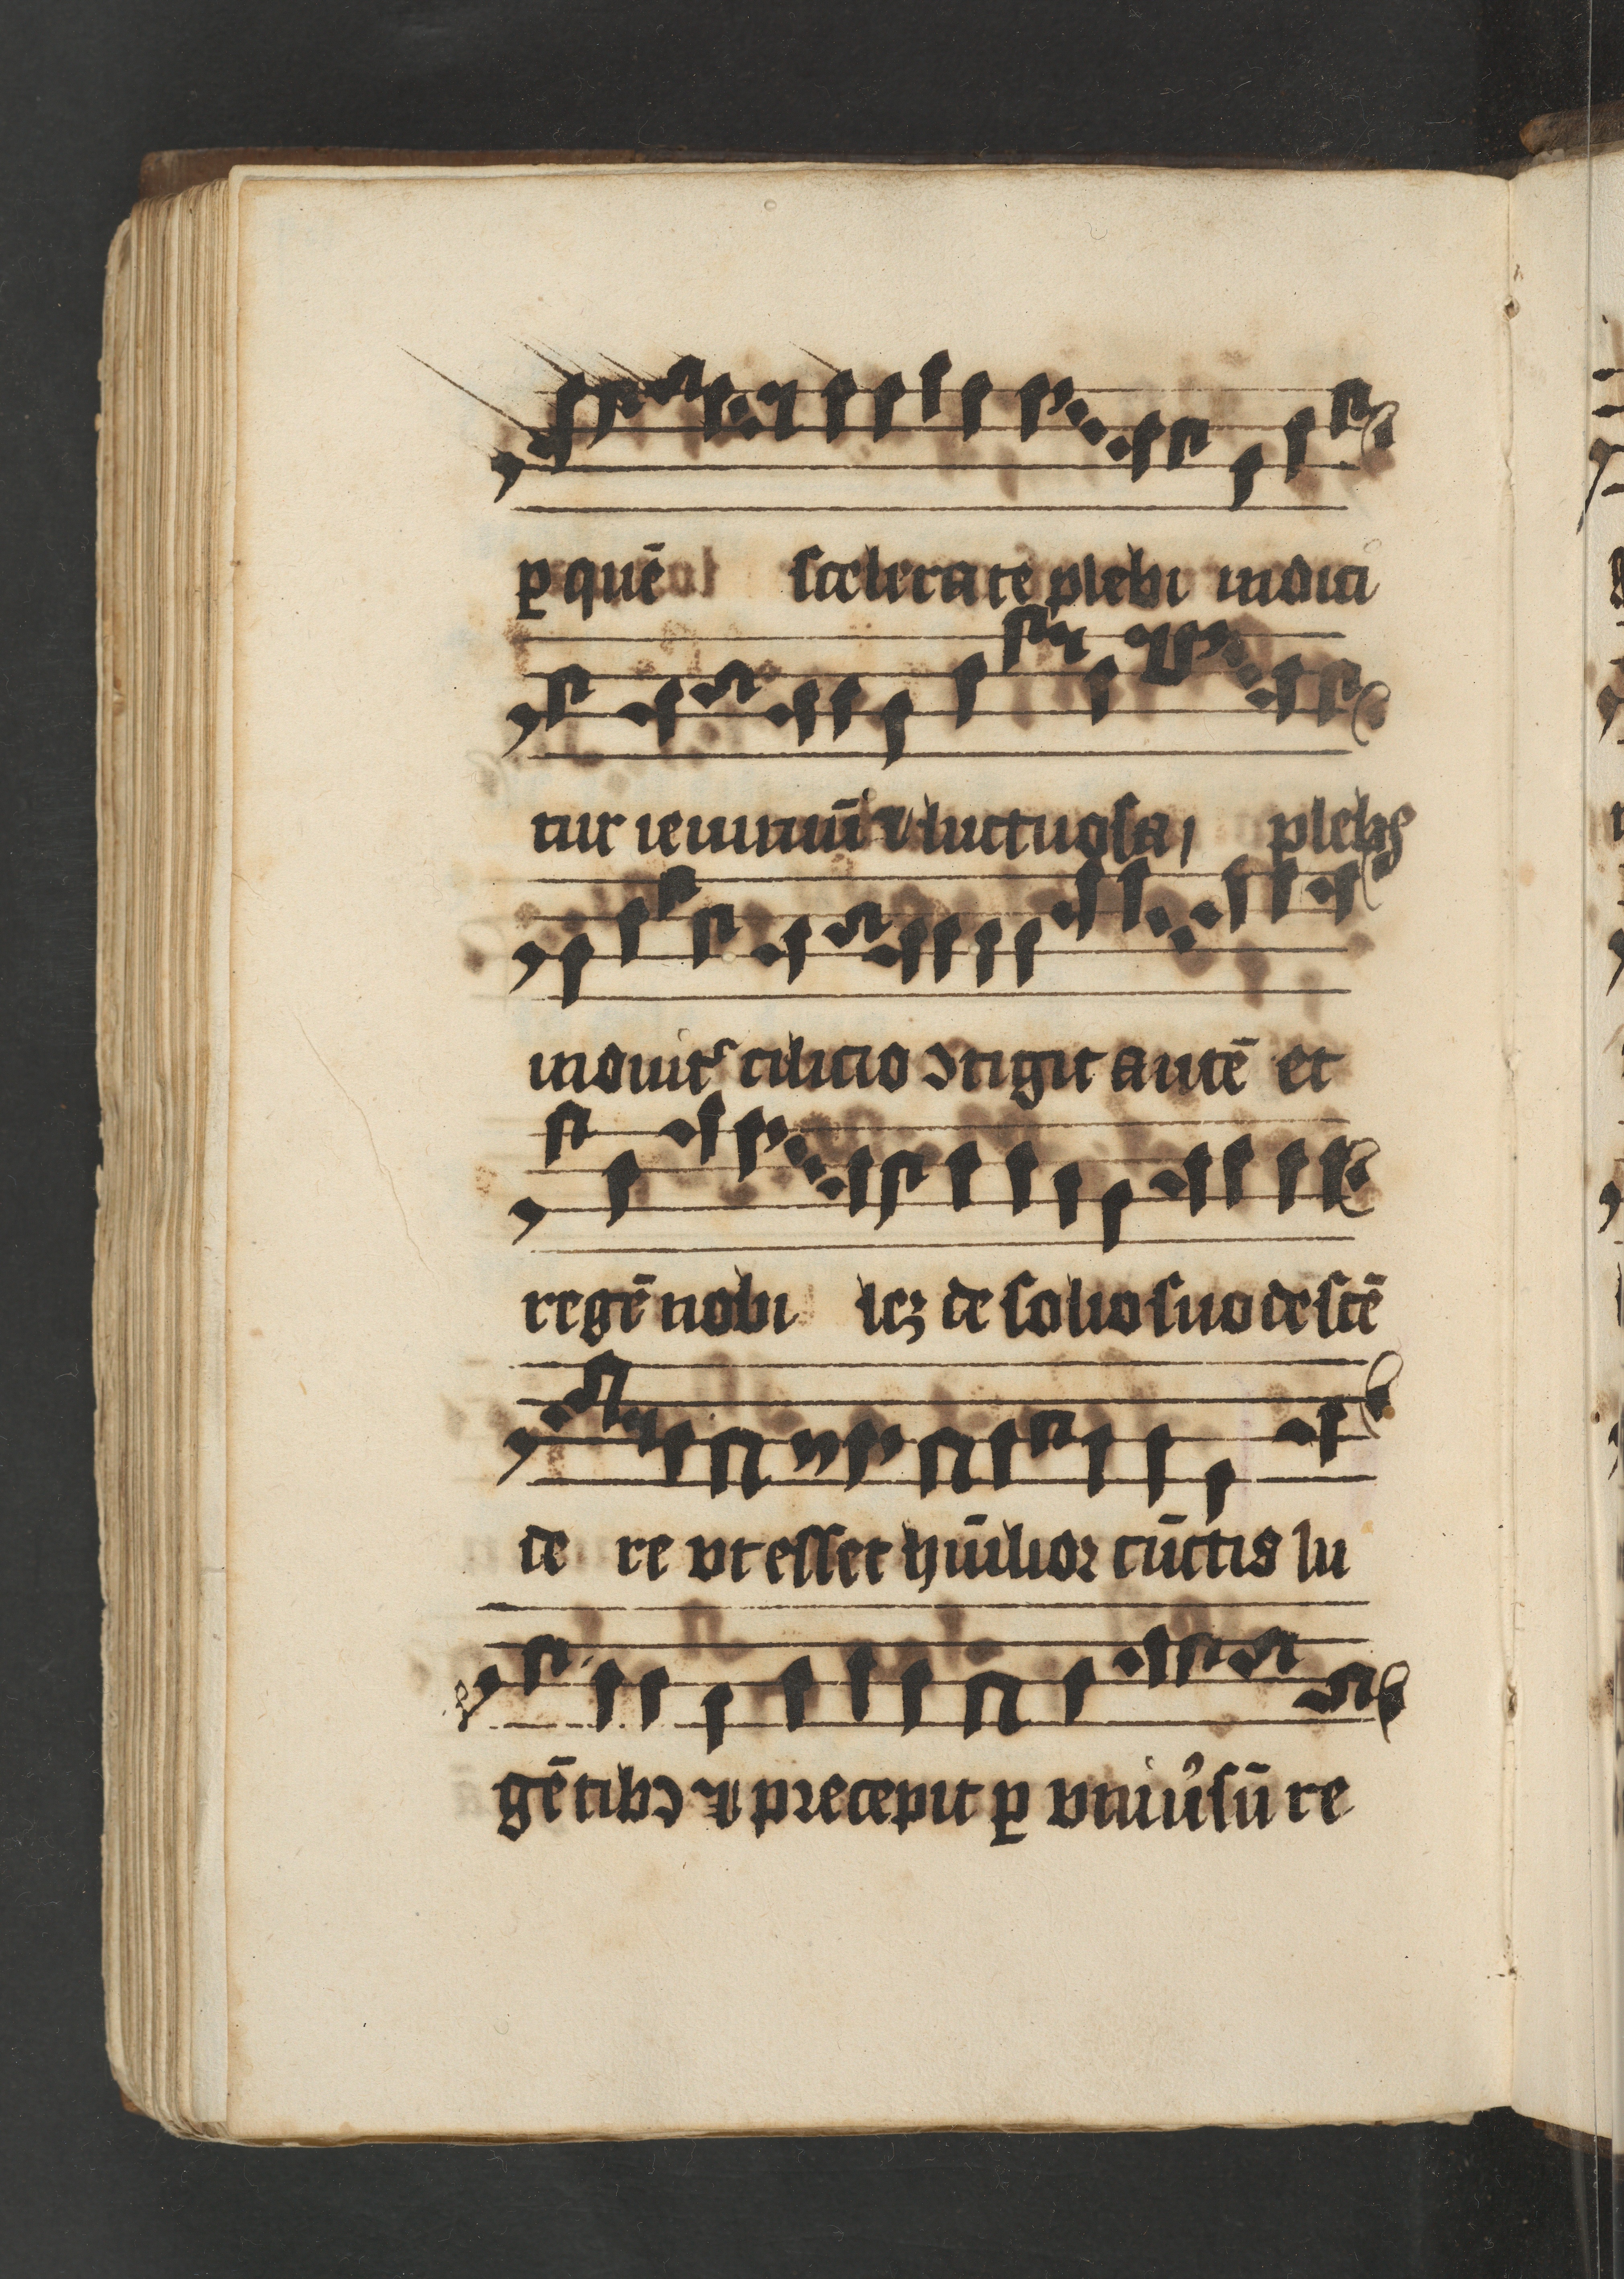 ꝑ quē scelerate plebi indici
tur ieiuniū ⁊ luctuosa plebs
induitᷣ cilicio ↄtigit autē et
regē nobi leꝫ de solio suo descē
de re vt esset hūilior cūctis lu
gētibꝯ ⁊ precepit ꝑ vniu̓sū re